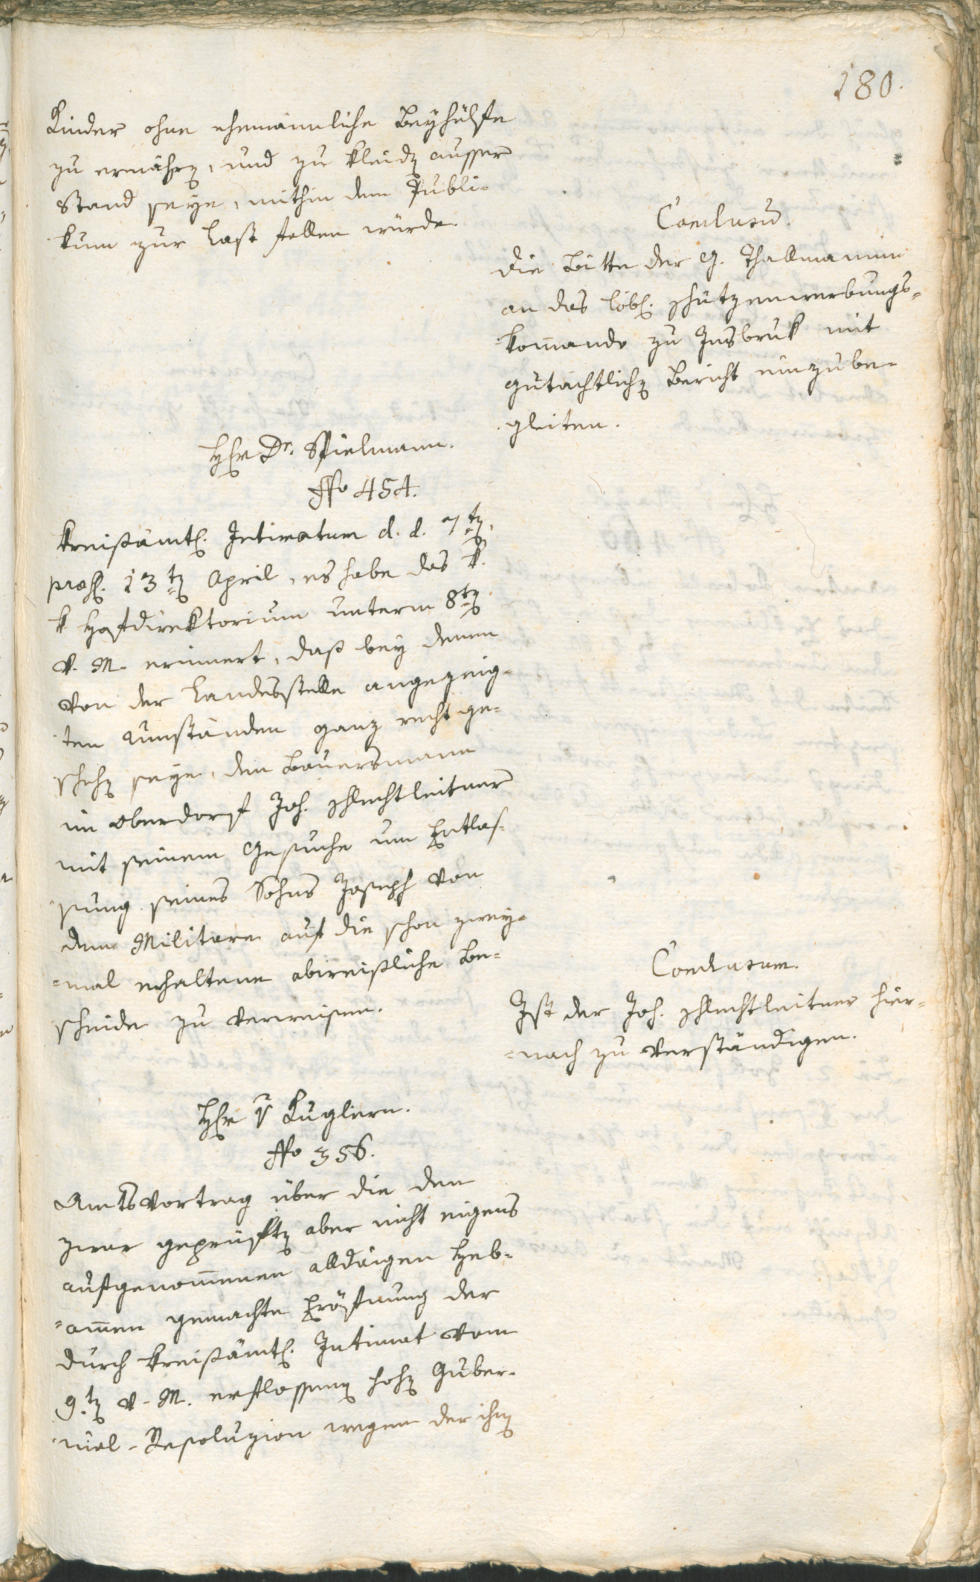 180.
Kinder ohne ehemännliche Beyhülfe
zu ernährn, und zu kleidn ausser
Stand seye, mithin dem Publi-
kum zur Last fallen würde.
Conclusũ.
Die Bitte der G. Thallmannin
an das löbl. Schützenwerbungs-
kom̃ando zu Insbruk mit
gutächtlichn Bericht einzube-
gleiten.
Herr Dr. Spielmann.
No 454.
Kreißämtl. Intimatum d. d. 7tn,
præs. 13tn April, es habe das k.
k. Hofdirektorium unterm 8tn
v. M. erinnert, daß bey denen
von der Landesstelle angezeig-
ten Umständen ganz recht ge-
schehn seye, den Bauersmann
in Oberdorf Joh. Schlechtleitner
mit seinem Gesuche um Entlas-
sung seines Sohns Joseph von
dem Militare auf die schon zwey-
=mal erhaltene abweisliche Be-
scheide zu verweisen.
Conclusum.
Ist der Joh. Schlechtleitner hier-
=nach zu verständigen.
Herr v Kuglern.
No 356.
Amtsvortrag über die den
zwar geprüftn aber nicht eigens
aufgenom̃enen alldaigen Heb-
=am̃en gemachte Eröfnung der
durch kreißämtl. Intimat vom
9.tn v. M. erflossenn hohn Guber-
nial-Resoluzion wegen der ihn